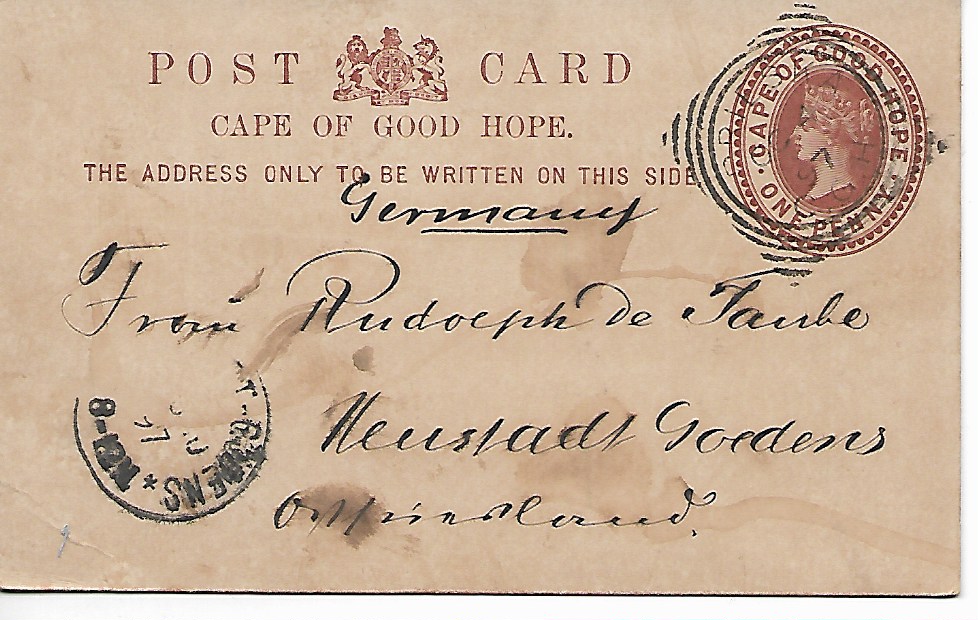 POST CARD
CAPE OF GOOD HOPE.
THE ADDRESS ONLY TO BE WRITTEN ON THIS SIDE
CAPE OF GOOD HOPE
ONE PENNY
Germany
Frau Rudolph de Taube
Neustadt Goedens
Ostfriesland.
8-9N